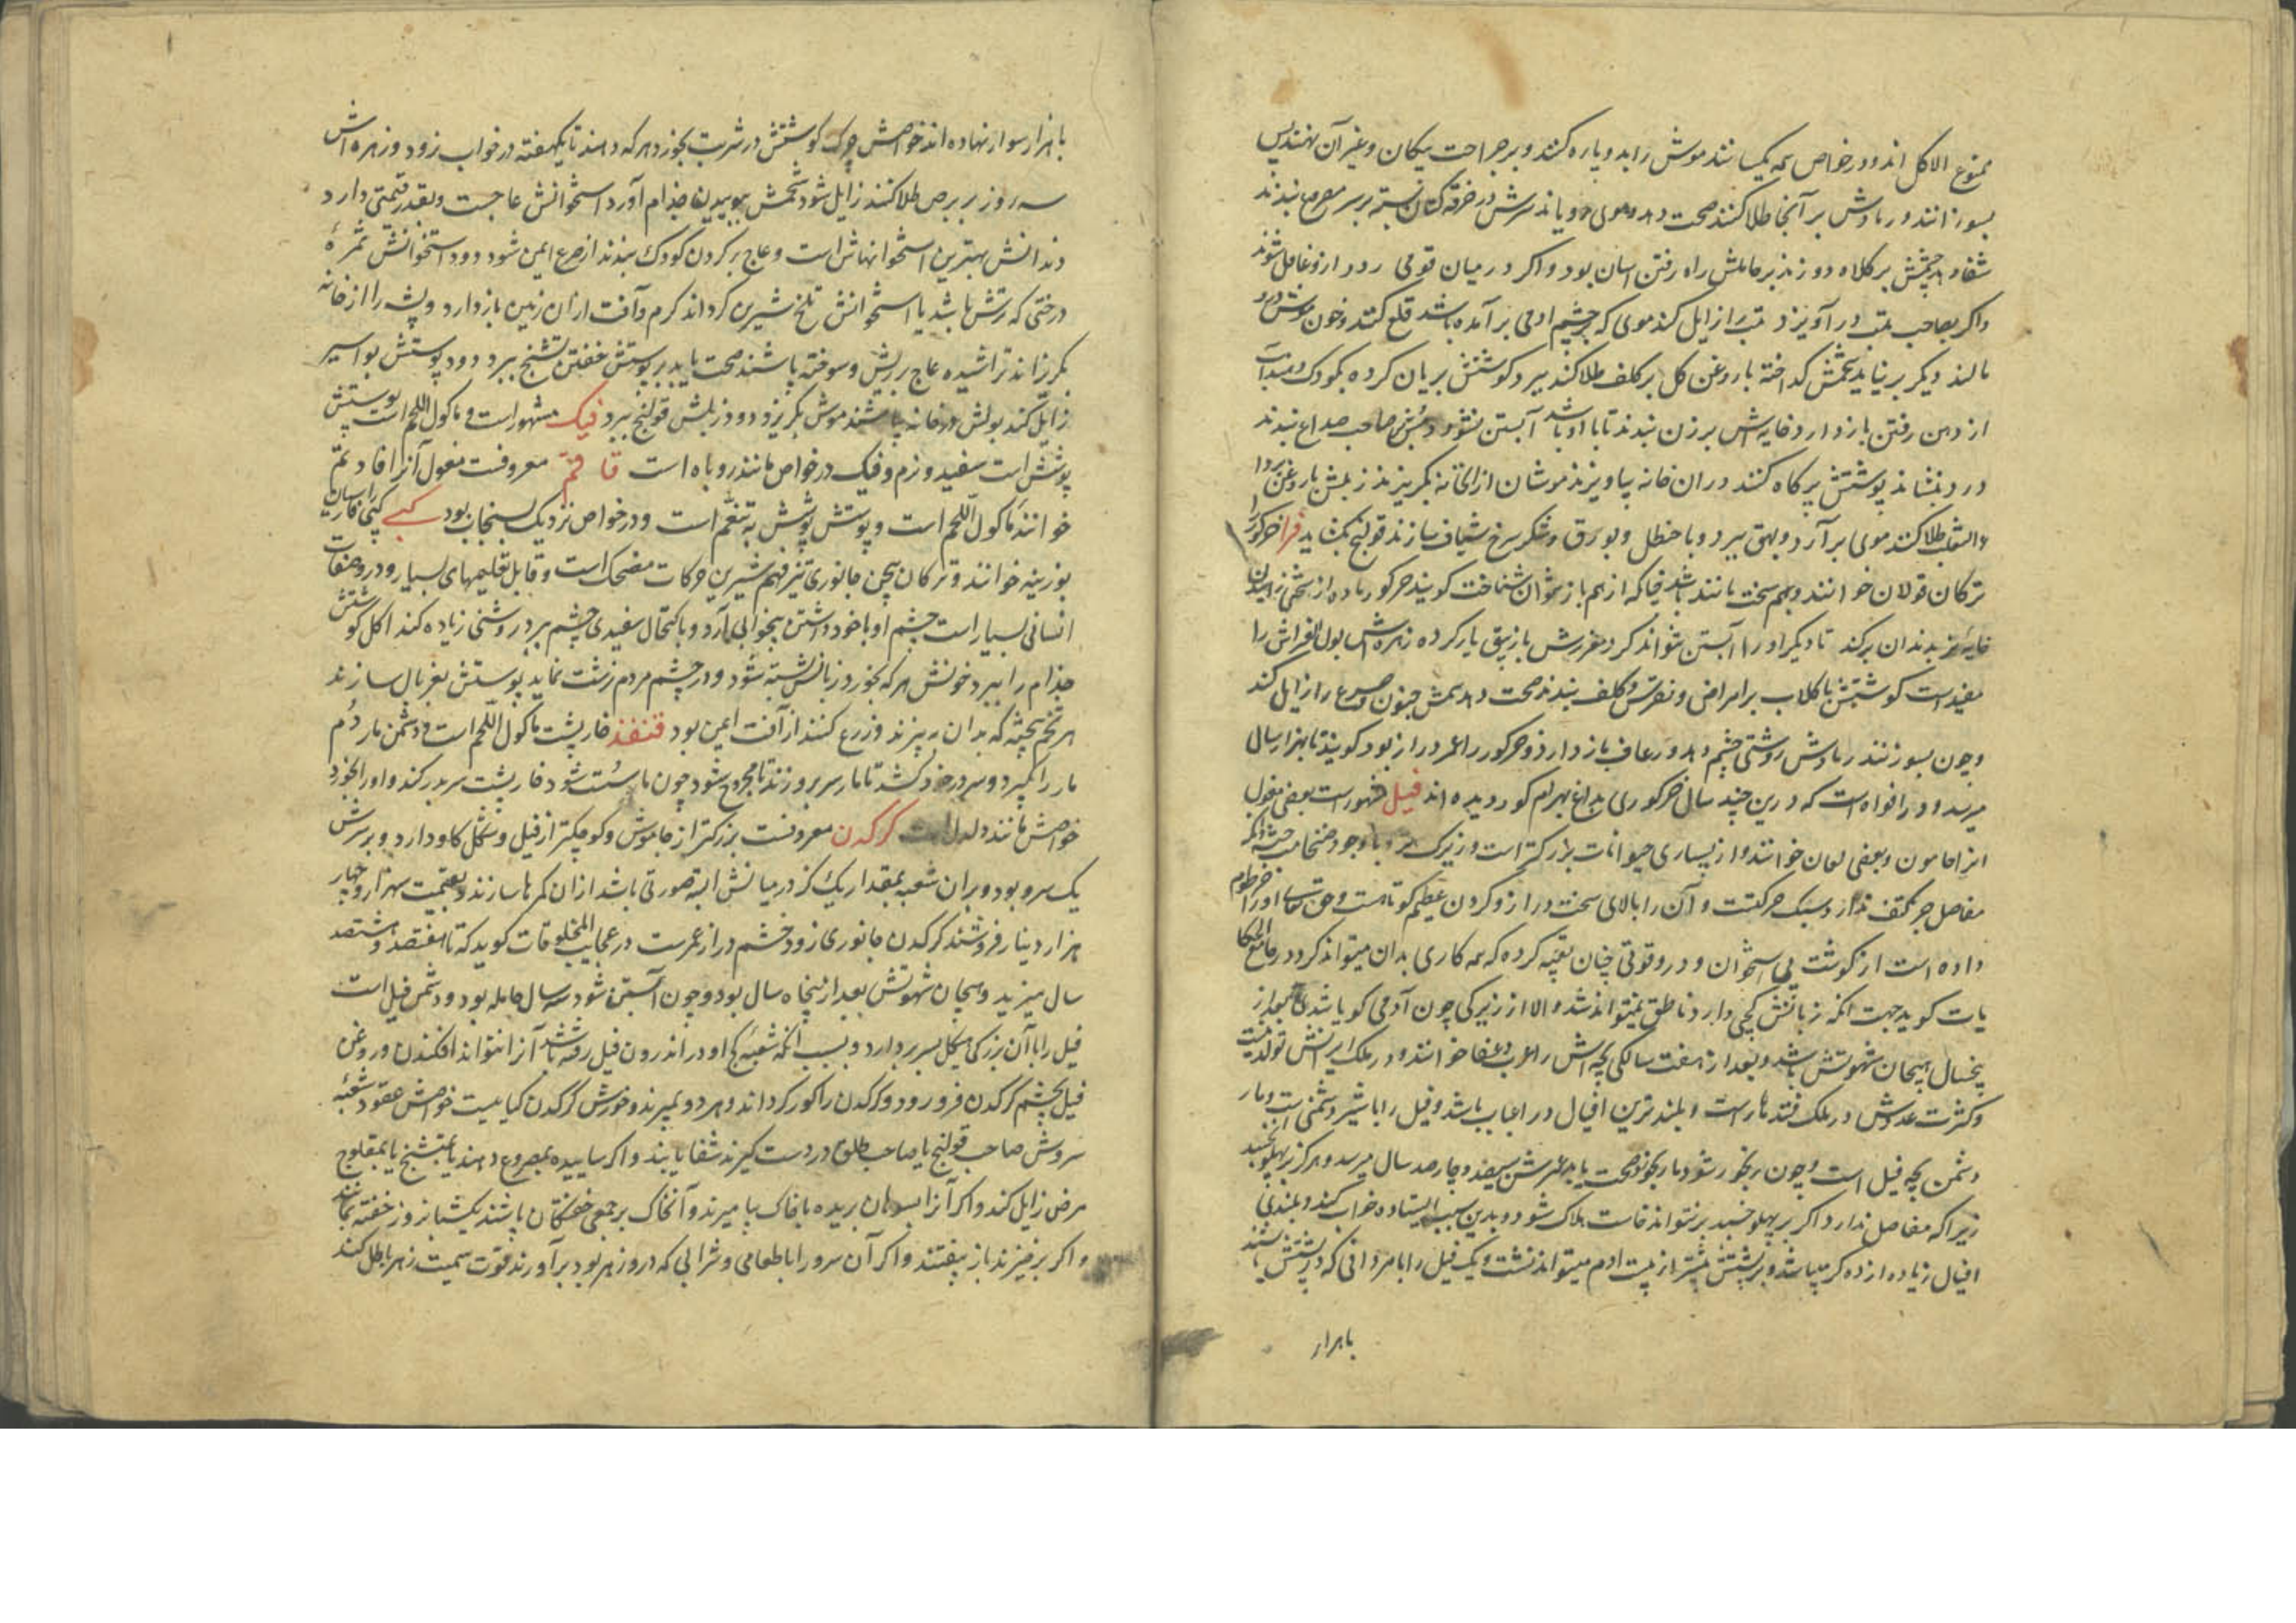 ممنوع الاکل اند و در خواص همه یکسانند موش را بدو پاره کنند و بر جراحت پیکان و غیر آن نهند پس
بسوزانند و رمادش بر آنجا طلا کنند صحت دهد و موی رویاند سرش در خرقه کتان بسته بر سر مصروع بندند
شفا دهد چشمش بر کلاه دوزند بر حاملش راه رفتن اسان بود و اکر در میان قومی رود ازو غافل شوند
واکر بصاحب تب در آویزد تب را زایل کند موی که بر چشم ادمی بر آمده باشد قلع کنند و خون موش درو
مالند دیکر بر نیاید شحمش کداخته با روغن کل بر کلف طلا کنند ببرد کوشتش بریان کرده بکودک دهند آب
از دهن رفتن باز دارد خایه اش بر زن بندند تا با او باشد آبستن نشود دمش بر صاحب صداع بندند
درد بنشاند پوستش پر کاه کنند در ان خانه بیاویزند موشان از ان خانه بکریزند زبلش با روغن بر داء
الثعلب طلا کنند موی بر آرد و بهق ببرد و با حنظل و بورق و شکر سرخ شیاف سازند قولنج بکشاید فرا خر کور را
ترکان قولان خوانند و بهم سخت مانند باشند چنانکه از هم باز نتوان شناخت کویند خر کور ماده از سختی زاییدن
خایه نر بدندان برکند تا دیکر او را آبستن نتواند کرد مغزش با زنبق یار کرده زهره اش بول الفراش را
مفیدست کوشتش با کلاب بر امراض و نقرس و کلف بندند صحت دهد سمش جنون و صرع را زایل کند
وچون بسوزنند رمادش روشنی چشم دهد و رعاف باز دارد و خر کور را عمر دراز بود کویند تا بهزار سال
میرسد و در افواه است که درین چند سال خر کوری بداغ بهرام کور دیده اند فیل مشهورست بعضی مغول
انرا هامون و بعضی لعان خوانند و از بسیاری حیوانات بزرکتر است و زیرک تر و با وجود ضخامت جثه انکه
مفاصل جز بکتف ندارد سبک حرکتست و آن را بالای سخت دراز و کردن عظیم کوتاهست و حق تعالی او را خرطوم
داده است از کوشت بی استخوان و درو قوتی چنان تعبیه کرده که همه کاری بدان میتواند کرد در جامع الحکا
یات کوید جهت انکه زبانش کجی دارد ناطق نمیتواند شد والا از زیرکی چون آدمی کویا شدی بعد از
پنجسال هیجان شهوتش باشد و بعد از هفت سالکی بچه اش را عرب دغفل خوانند و در ملک ایرانش تولد نیست
وکثرت عددش در ملک قندهارست و بلندترین افیال در اغباب باشد و فیل را با شیر دشمنی است و مار
دشمن بچه فیل است وچون رنجور شود مار بخورد صحت یابد عمرش سیصد و چارصد سال میرسد و هرکز بر پهلو نخسبد
زیرا که مفاصل ندارد اکر بر پهلو خسبد بر نتواند خاست هلاک شود و بدین سبب ایستاده خواب کند و بلندی
افیال زیاده از ده کز میباشد و بر پشتش بیشتر از بیست ادم میتواند نشست و یک فیل را با مردانی که در پشتش باشند
باهزار
با هزار سوار نهاده اند خواصش چرک کوشتش در شربت بخورد هر که دهند تا یکهفته در خواب رود و زهره اش
سه روز بر برص طلا کنند زایل شود شحمش ببوییدن جذام آورد استخوانش عاجست و بقدر قیمتی دارد
دندانش بهترین استخوانهاش است و عاج بر کردن کودک بندند از صرع ایمن شود دود استخوانش ثمرهٔ
درختی که ترش باشد یا استخوانش تلخ شیرین کرداند کرم و آفت از ان زمین باز دارد و پشه را از خانه
بکریزاند تراشیده عاج بر ریش و سوخته پاشند صحت یابد بر پوستش خفتن تشنج ببرد دود پوستش بواسیر
زایل کند بولش در خانه پاشند موش بکریزد دود زبلش قولنج ببرد فنک مشهور است و ماکول اللحم است پوستش
پوشش است سفید و نرم و فنک در خواص مانند روباه است قاقم معروفست مغول آنرا قاقم
خوانند ماکول اللحم است و پوستش پوشش به تنعم است و در خواص نزدیک بسنجاب بود کپی کپی را فارسیان
بوزینه خوانند و ترکان پیچن جانوری تیز فهم شیرین حرکات مضحک است و قابل تعلیمهای بسیار و درو صفات
انسانی بسیار است چشم او با خود داشتن بیخوابی آرد و باکتحال سفیدی چشم ببرد روشنی زیاده کند اکل کوشتش
جذام را ببرد خونش هر که بخورد زبانش بسته شود و در چشم مردم زشت نماید پوستش بغربال سازند
هر تخم بحیثی که بدان بیزند و زرع کنند از آفت ایمن بود قنفذ خارپشت ماکول اللحم است و دشمن مار دم
مار را بکیرد و سر در خود کشد تا مار سر برو زند تا مجروح شود چون مار سست شود خارپشت سر بدر کند و او را بخورد
خواصش مانند دلدل است کرکدن معروفست بزرکتر از جاموش و کوچکتر از فیل و شکل کاو دارد و بر سرش
یک سرو بود و بران شعبه بمقدار یک کز در میانش البته صورتی باشد از ان کمرها سازند و بقیمت سه هزار و چهار
هزار دینار فروشند کرکدن جانوری زود خشم دراز عمرست در عجایب المخلوقات کوید که تا هفتصد و هشتصد
سال میزید و هیجان شهوتش بعد از پنجاه سال بود و چون آبستن شود سه سال حامله بود و دشمن فیل است
فیل را با آن بزرکی هیکل بسر بردارد و بسبب انکه شعبهٔ کج او در اندرون فیل رفته باشد آنرا نتواند افکندن و روغن
فیل بچشم کرکدن فرو رود و کرکدن را کور کرداند و هر دو بمیرند و خورش کرکدن کیاهیست خواصش عقود شعبهٔ
سروش صاحب قولنج یا صاحب طلق در دست کیرند شفا یابند واکر ساییده بمصروع دهند یا بتشنج یا بمفلوج
مرض زایل کند واکر آنرا بسوهان بریده با خاک بیامیزند و آنخاک بر جمعی خفتکان پاشند یکشبانروز خفته بمانند
و اکر برخیزند باز بیفتند و اکر آن سرو را با طعامی و شرابی که درو زهر بود برآورند قوت سمیت زهر باطل کند